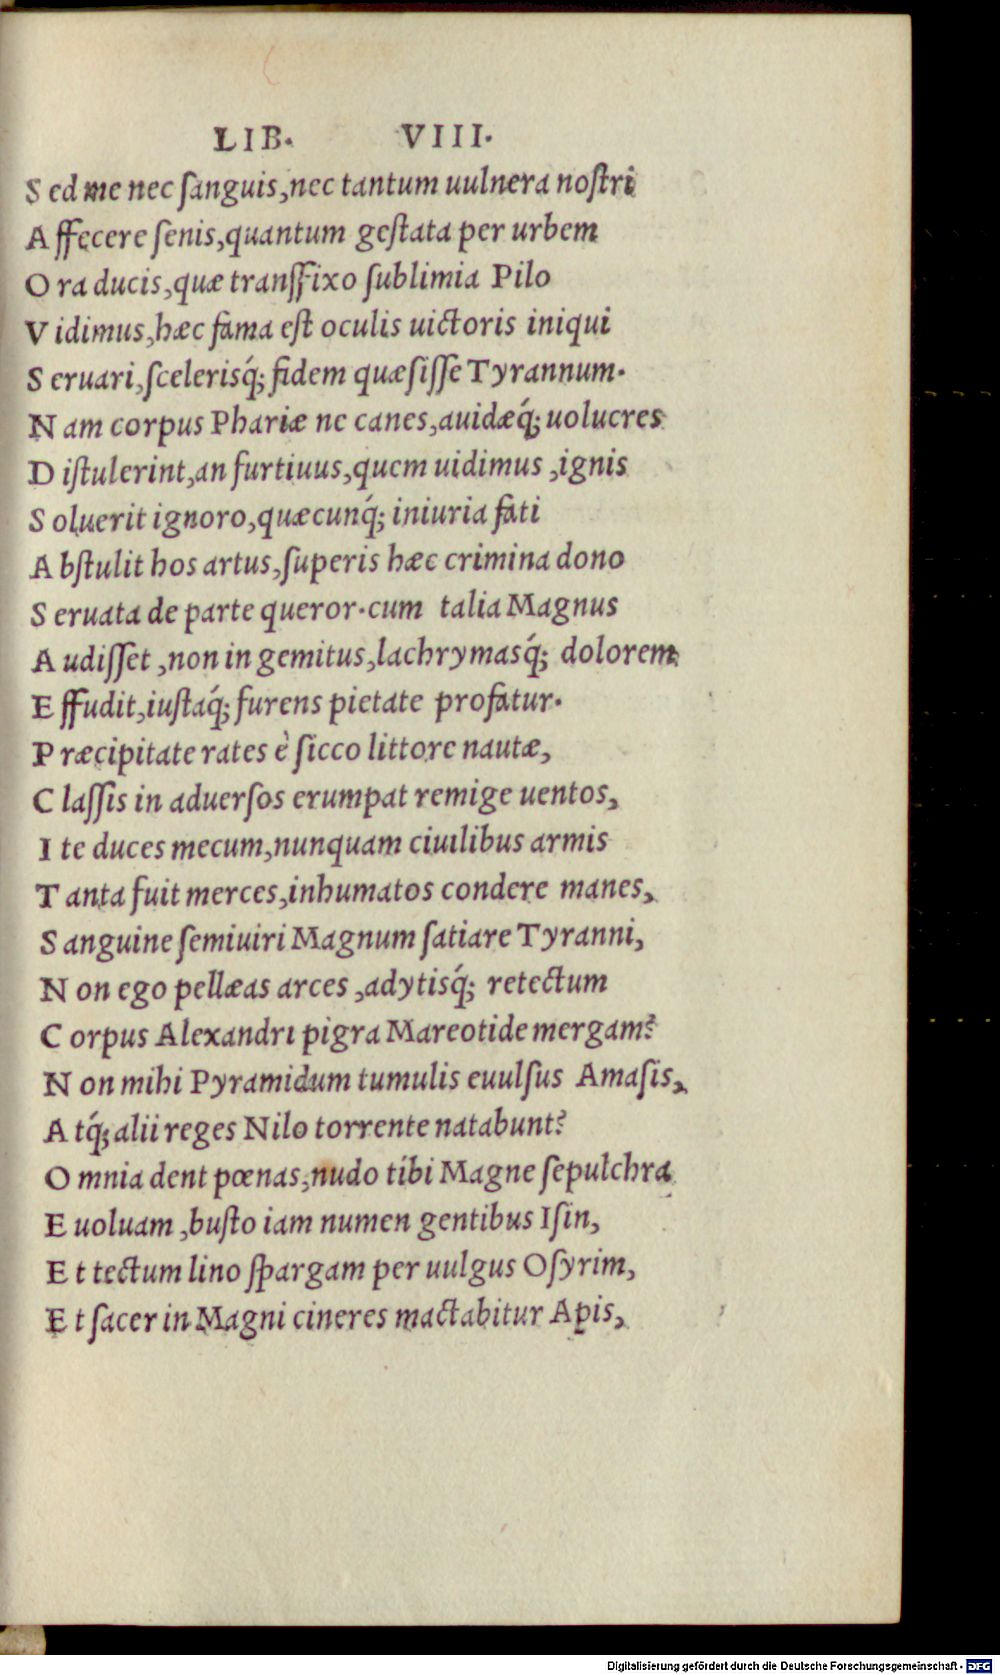 LIB. VIII.
S ed me nec ſanguis,nec tantum uulnera noſtri
A ffecere ſenis,quantum geſtata per urbem
O ra ducis,quæ tranſfixo ſublimia Pilo
V idimus,hæc fama eſt oculis uictoris iniqui
S eruari,ſcelerisq́; fidem quæſiſſe Tyrannum.
N am corpus Phariæ ne canes,auidæq́; uolucres
D iſtulerint,an furtiuus,quem uidimus ,ignis
S oluerit ignoro,quæcunq́; iniuria fati
A bſtulit hos artus,ſuperis hæc crimina dono
S eruata de parte queror.cum talia Magnus
A udiſſet ,non in gemitus,lachrymasq́; dolorem
E ffudit,iuſtaq́; furens pietate profatur.
P ræcipitate rates è ſicco littore nautæ,
C laſſis in aduerſos erumpat remige uentos,
I te duces mecum,nunquam ciuilibus armis
T anta fuit merces,inhumatos condere manes,
S anguine ſemiuiri Magnum ſatiare Tyranni,
N on ego pellæas arces ,adytisq́; retectum
C orpus Alexandri pigra Mareotide mergam?
N on mihi Pyramidum tumulis euulſus Amaſis,
A tq́; alii reges Nilo torrente natabunt?
O mnia dent pœnas,nudo tibi Magne ſepulchra
E uoluam ,buſto iam numen gentibus Iſin,
E t tectum lino ſpargam per uulgus Oſyrim,
E t ſacer in Magni cineres mactabitur Apis,
Digitalisierung gefördert durch die Deutsche Forschungsgemeinschaft - DFG